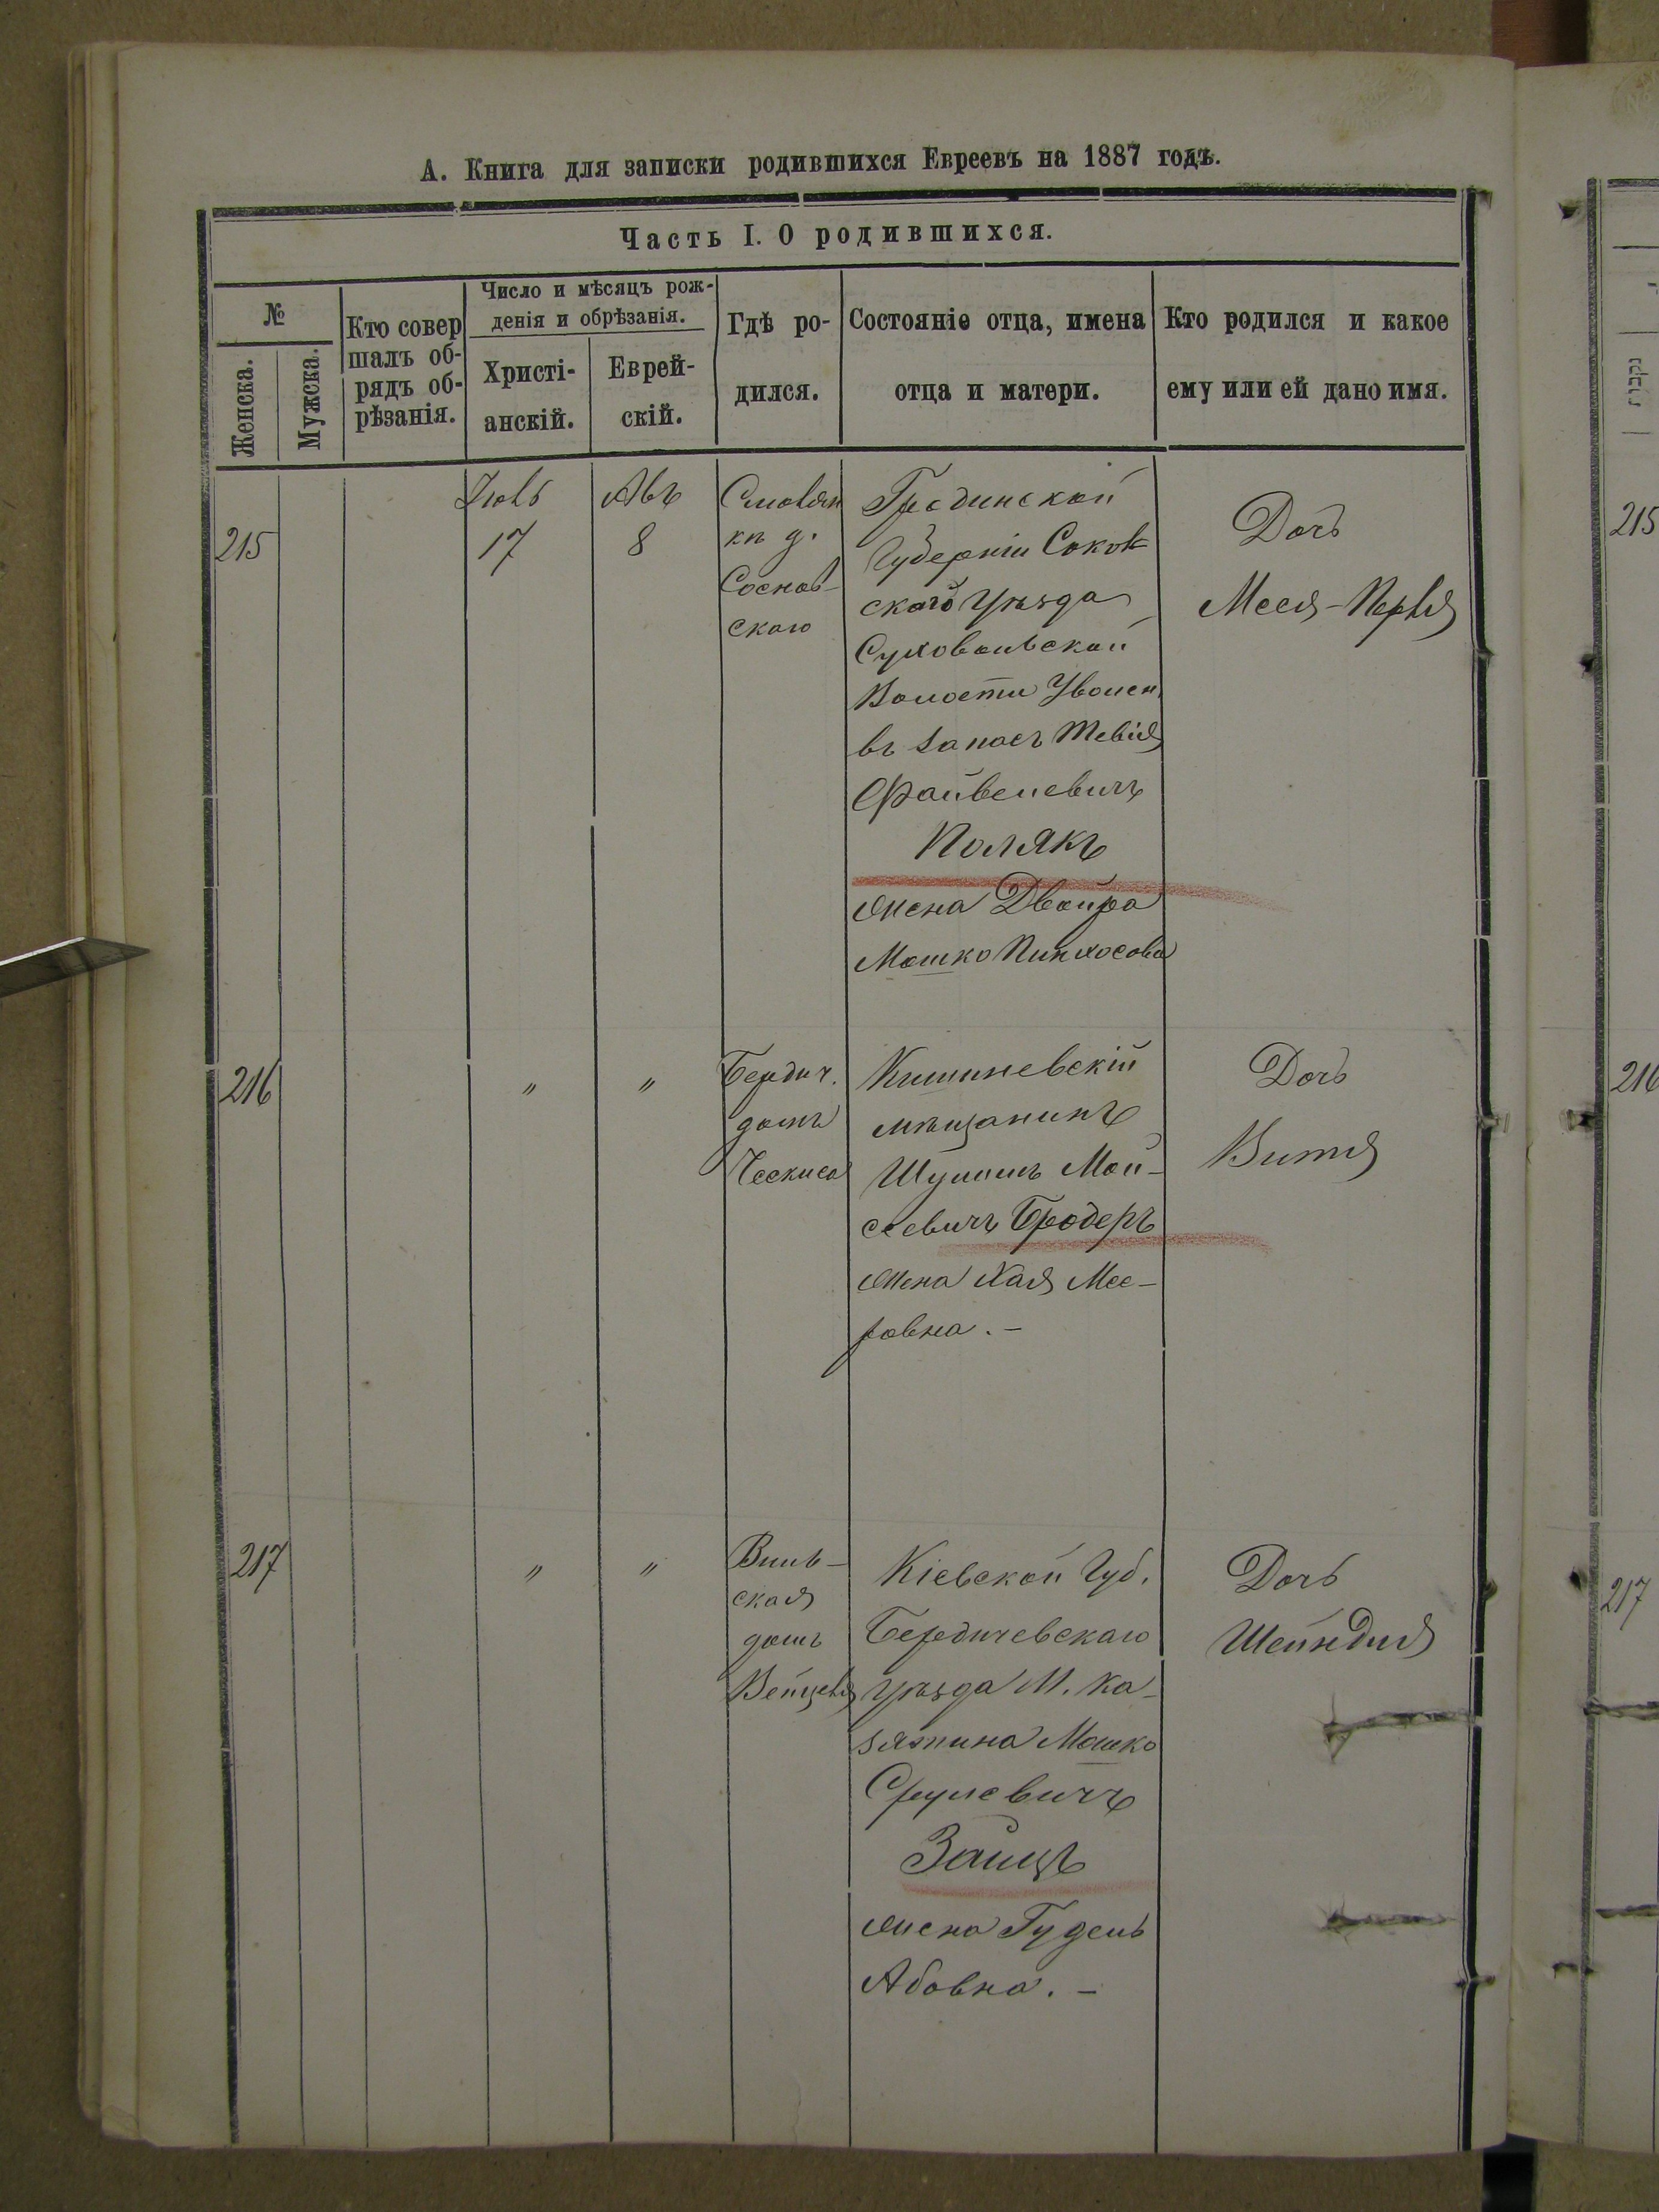 А. Книга для записки родившихся Евреевъ на 1887 годъ.
Часть I. О родившихся.
№
Женска.
Мужска.
Кто совер
шалъ об-
рядъ об-
рѣзанія.
Число и мѣсяцъ рож-
денія и обрѣзанія.
Христі-
анскій.
Еврей-
скій.
Гдѣ ро-
дился.
Состояніе отца, имена
отца и матери.
Кто родился и какое
ему или ей дано имя.
215
Іюль
17
Авъ
8
д.
Соснов-
скаго
Гродинской
Губерніи Соколь
скаго Уѣзда
Суховольской
Волости Уволен.
въ запасъ Тевія
Файвелевичъ
Полякъ
жена Двойра
Мошко Пинхосова
Дочь
Меся-Перля
216
"
"
Бердич.
домъ
Кишиневскій
мѣщанинъ
Шулимъ Мой-
сеевичъ Бродеръ
жена Хая Мее-
ровна. -
Дочь
Витя
217
"
"
Виль-
ская
домъ
Кіевской Губ.
Бердичевскаго
уѣзда М. Ка-
зятина Мошко
Срулевичъ
Заицъ
жена Гудель
Абовна. -
Дочь
Шейндля
215
216
217